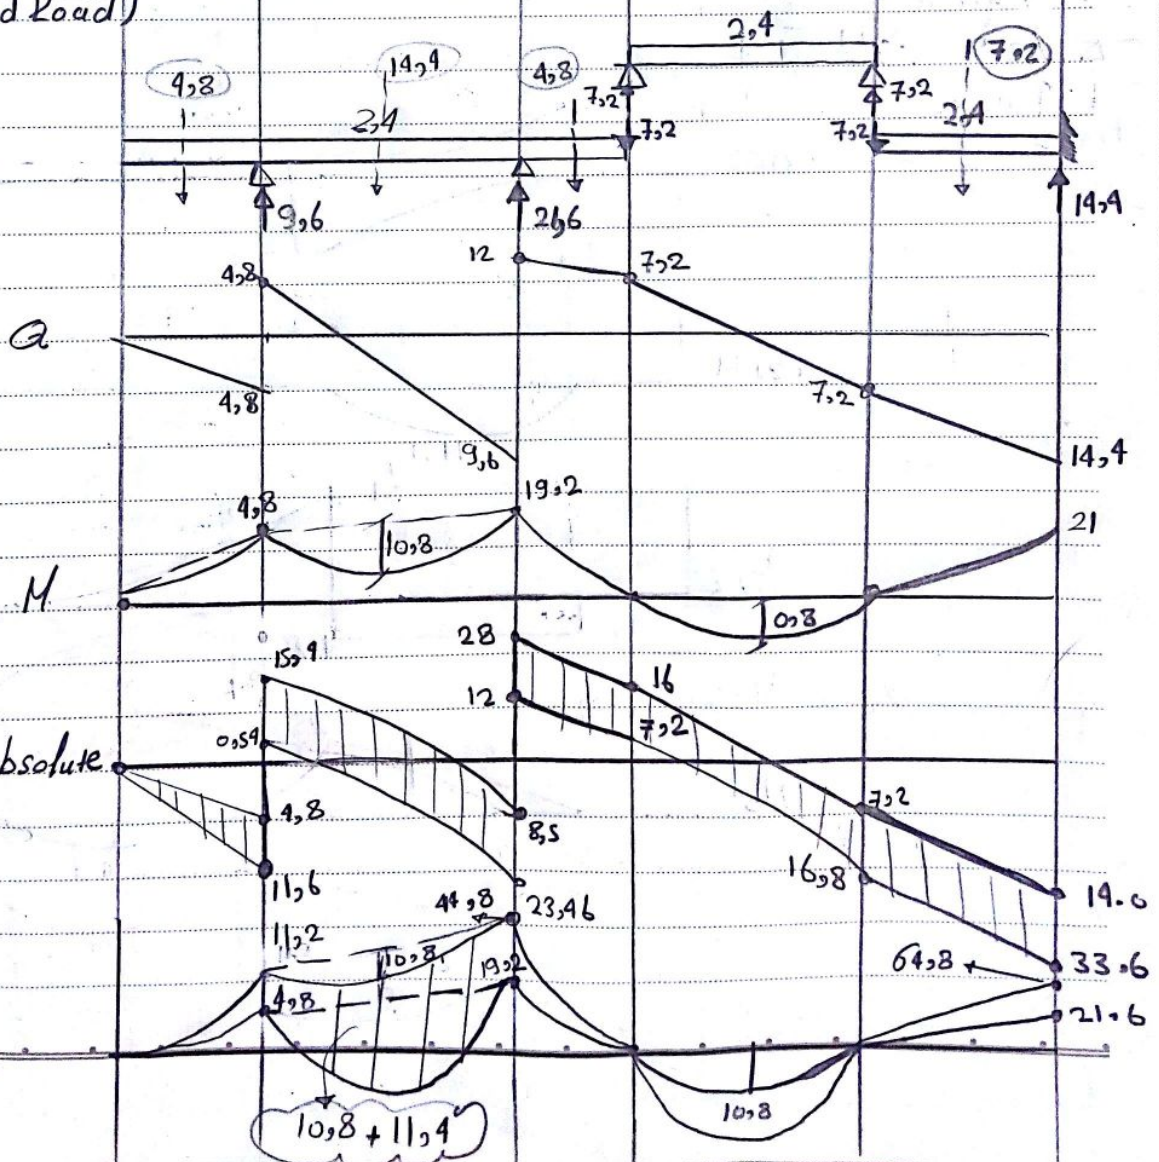 d Load)
2,4
4,8
14,4
4,8
7,2
7,2
7,2
2,4
7,2
7,2
2,4
9,6
21,6
14,4
12
7,2
4,8
Q
4,8
7,2
9,6
14,4
19,2
4,8
10,8
21
M
10,8
28
15,4
12
16
7,2
0,54
bsolute
4,8
7,2
8,5
11,6
16,8
14.0
44,8
23,46
11,2
10,8
19,2
64,8
33.6
4,8
21.6
10,8
10,8 + 11,4